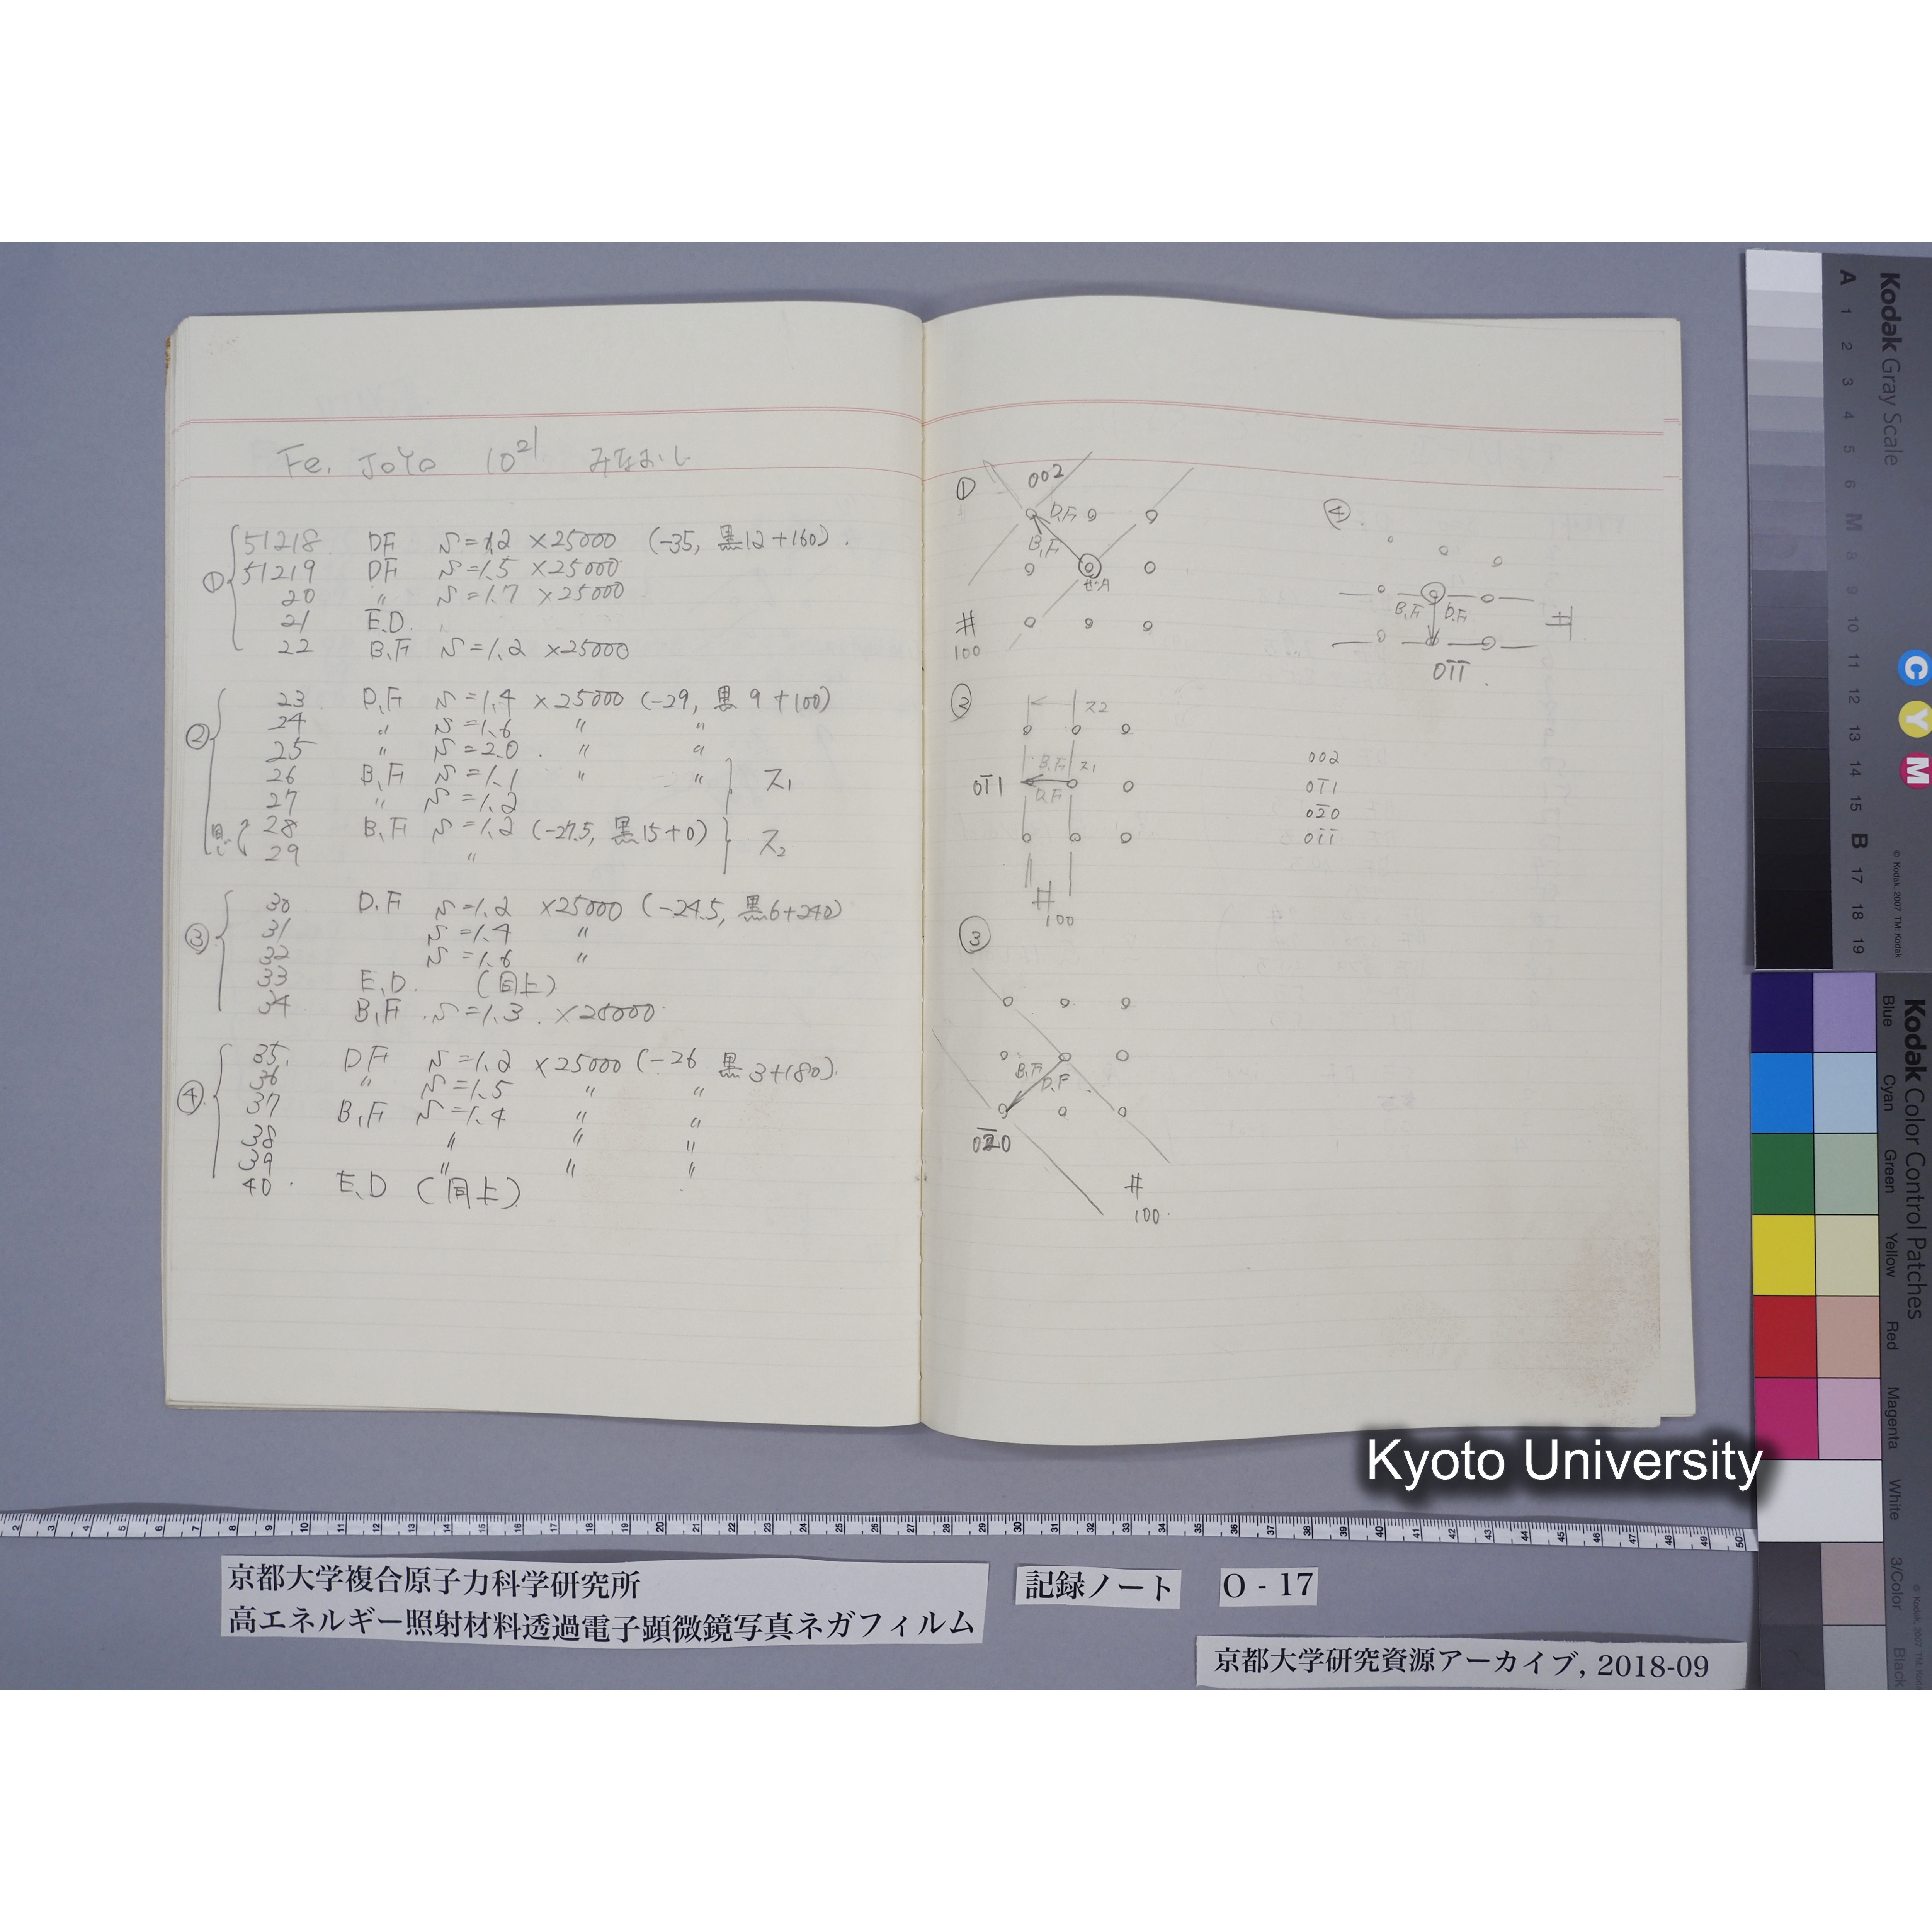 Fe, JOYO 10²¹ みなおし
① 51218 DF S=1.2 ×25000 (-35, 黒12+160).
51219 DF S=1.5 ×25000
20 〃 S=1.7 ×25000
21 E.D.
22 B.F S=1.2 ×25000
② 23 D.F S=1.4 ×25000 (-29, 黒 9+100)
24 〃 S=1.6 〃 〃
25 〃 S=2.0 〃 〃
26 B.F S=1.1 〃 〃 ス1
27 〃 S=1.2
28 B.F S=1.2 (-27.5, 黒15+0) ス2
29 〃
③ 30 D.F S=1.2 ×25000 (-24.5, 黒6+240)
31 S=1.4 〃
32 S=1.6 〃
33 E.D. (同上)
34 B.F S=1.3 ×25000
④ 35. DF S=1.2 ×25000 (-26 黒3+180).
36 〃 S=1.5 〃 〃
37 B.F S=1.4 〃 〃
38 〃 〃 〃
39 〃 〃 〃
40. E.D (同上)
①
002
D.F
B.F
#
100
④.
B.F D.F
#
01̅1̅.
②
ス2
B.F ス1
01̅1
D.F
#
100
002
01̅1
02̅0
01̅1̅
③
B.F
D.F
02̅0
#
100.
Kyoto University
京都大学複合原子力科学研究所
高エネルギー照射材料透過電子顕微鏡写真ネガフィルム
記録ノート
O - 17
京都大学研究資源アーカイブ, 2018-09
Kodak Gray Scale
A 1 2 3 4 5 6 M 8 9 10 11 12 13 14 15 B 17 18 19
© Kodak, 2007 TM: Kodak
C Y M
Kodak Color Control Patches
Blue Cyan Green Yellow Red Magenta White 3/Color Black
2 3 4 5 6 7 8 9 10 11 12 13 14 15 16 17 18 19 20 21 22 23 24 25 26 27 28 29 30 31 32 33 34 35 36 37 38 39 40 41 42 43 44 45 46 47 48 49 50